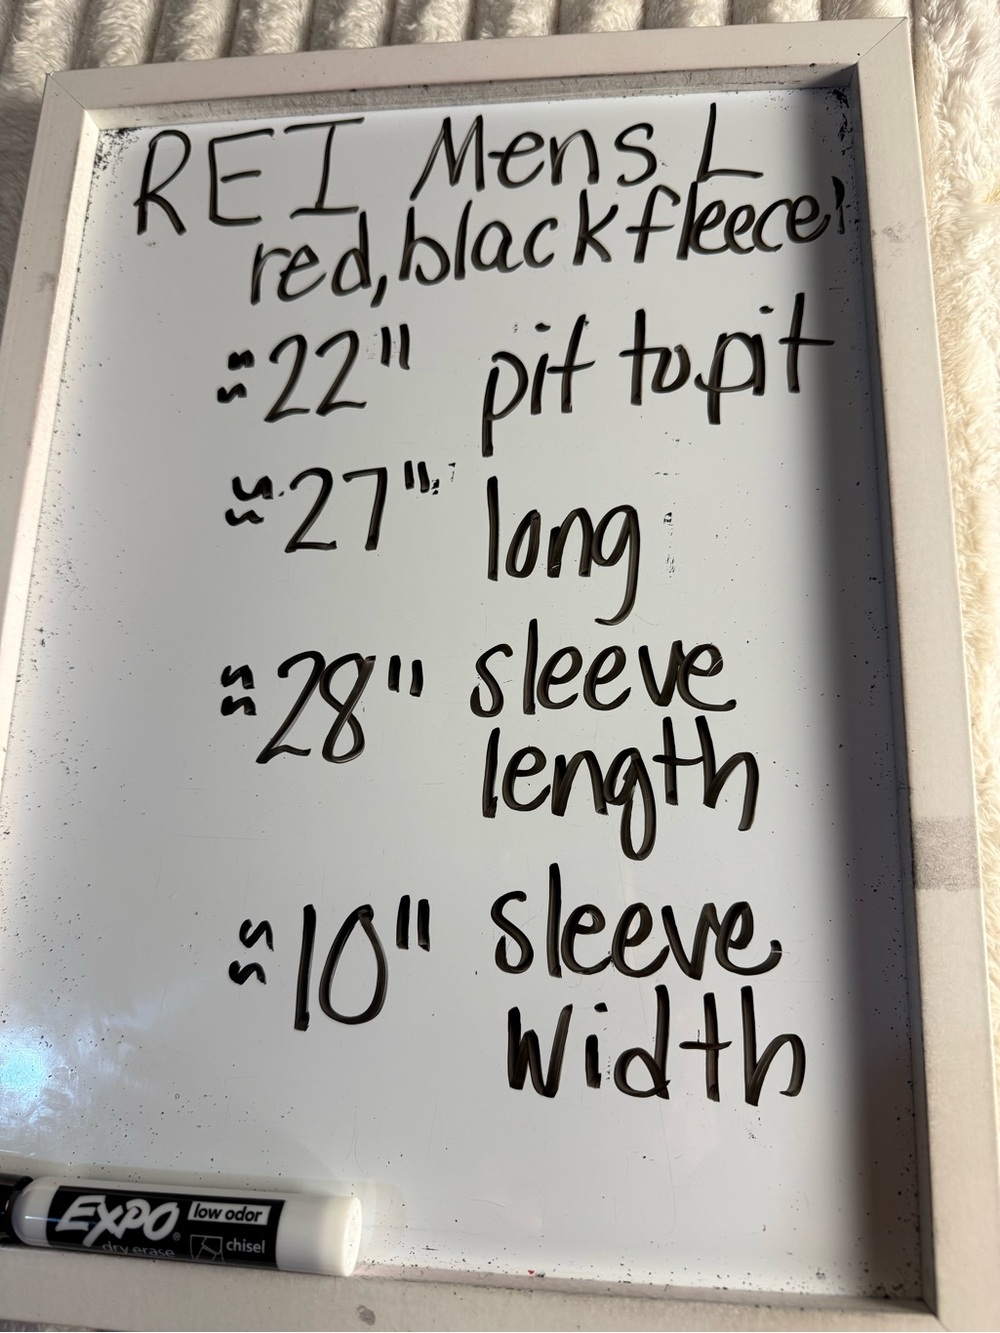 REI Mens L
red, black fleece
≈22" pit to pit
≈27" long
≈28" sleeve
length
≈10" sleeve
width
EXPO® low odor
dry erase chisel